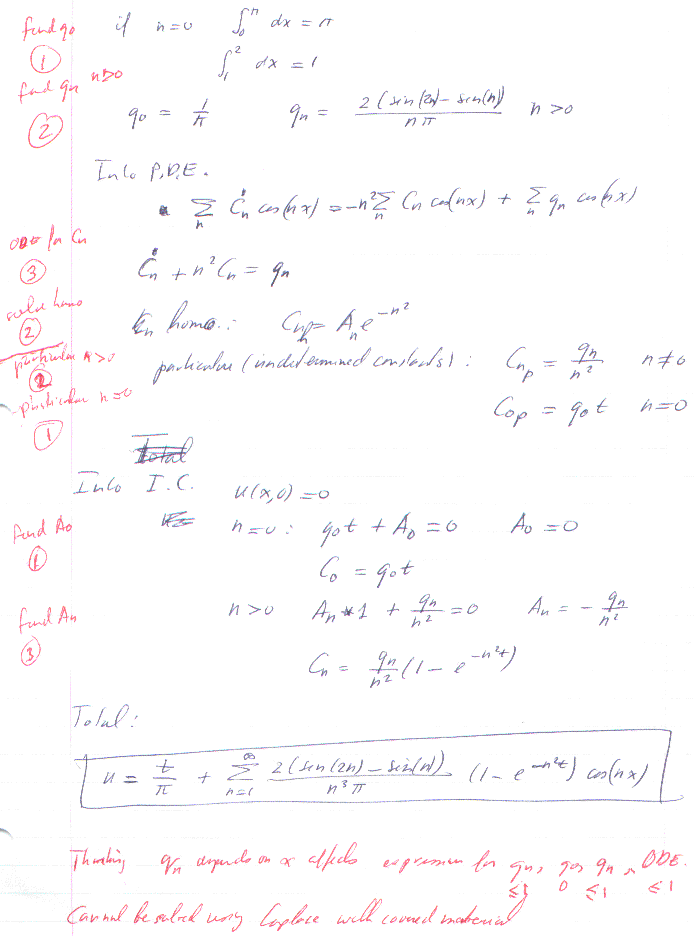 find q₀ if n=0 ∫₀^π dx = π
① ∫₁² dx = 1
find qn n>0
② q₀ = 1/π qn = 2(sin(2n) - sin(n))/(nπ) n>0
Into P.D.E.
∑ₙ Ċn cos(nx) = -n² ∑ₙ Cn cos(nx) + ∑ₙ qn cos(nx)
ODE for Cn
③ Ċn + n² Cn = qn
solve homo
② homo.: Cnₕ = An e^(-n²)
particular n>0 particular (undetermined constants): Cnₚ = qn/n² n≠0
②
particular n=0 C₀ₚ = q₀t n=0
①
Total
Into I.C. u(x,0) = 0
find A₀ n=0: q₀t + A₀ = 0 A₀ = 0
① C₀ = q₀t
find An n>0 An * 1 + qn/n² = 0 An = - qn/n²
③ Cn = qn/n² (1 - e^(-n²t))
Total:
u = t/π + ∑ₙ₌₁^∞ 2(sin(2n) - sin(n))/(n³π) (1 - e^(-n²t)) cos(nx)
Thinking qn depends on x affects expression for qn, q₀, qn, ODE.
0 ≤1 ≤1
Cannot be solved using Laplace with covered material